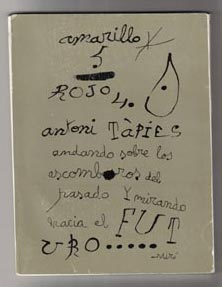 amarillo
5
ROJO 4.
antoni TÀPIES
andando sobre los
escombros del
pasado Y mirando
hacia el FUT
URO.....
Miró